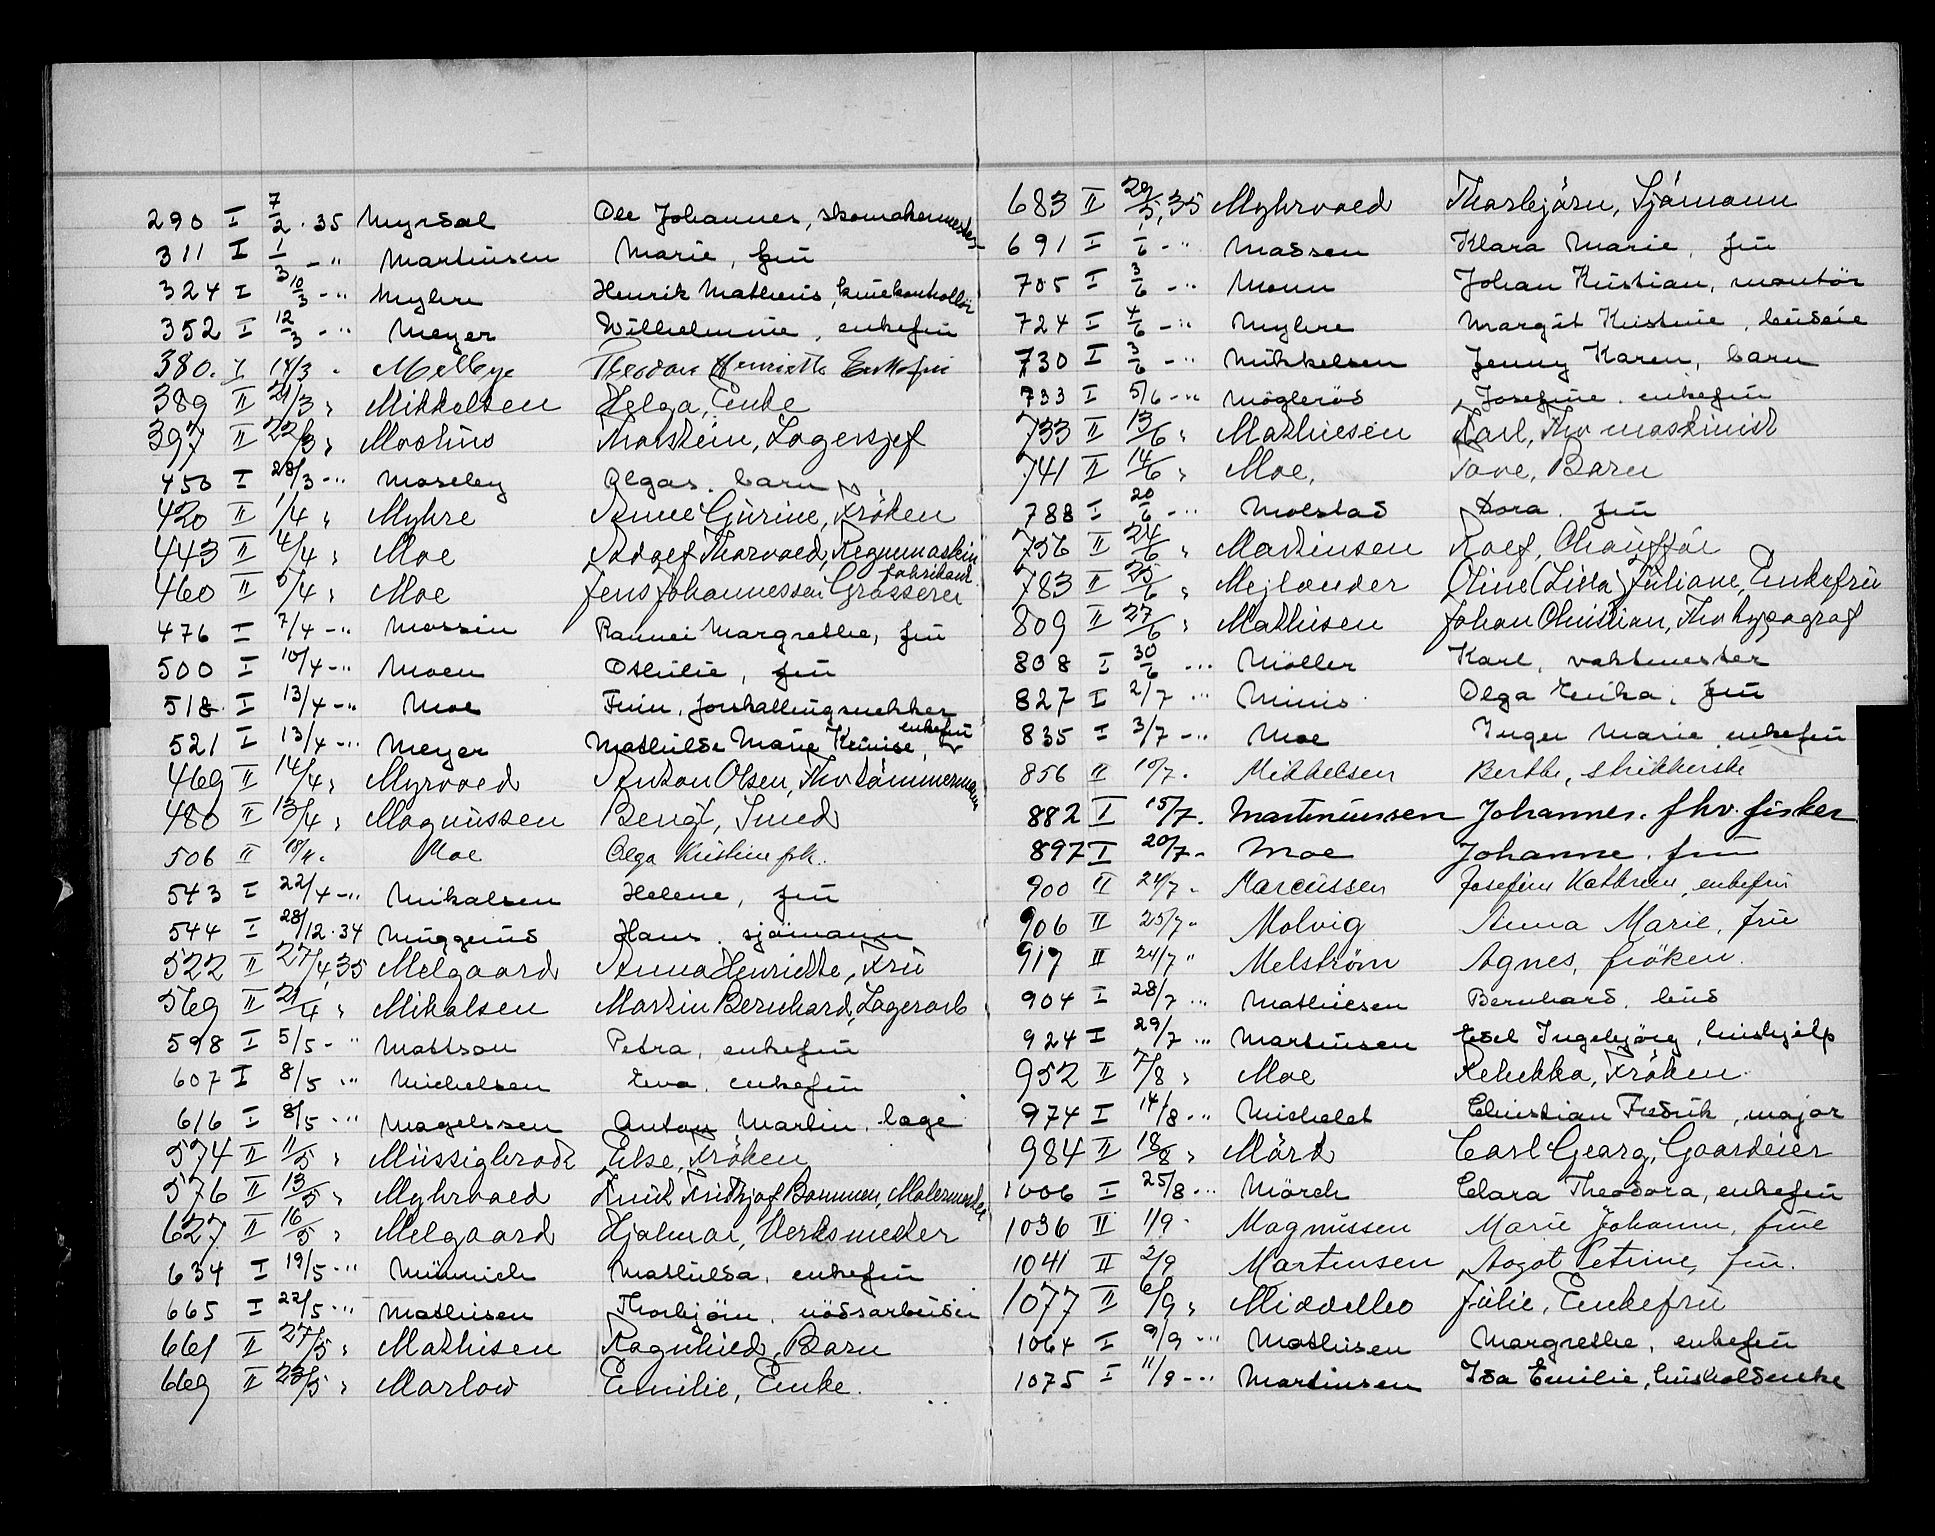 290 I 7/2 . 35 Myrdal Ole Johannes, skomakermester
311 I 1/3 - " Martinsen Marie, fru
324 I 10/3 - " Myhre Henrik Matheus, kinokontrollør
352 I 12/3 - " Meyer Wilhelmine, enkefru
380. I 14/3 " Melbye Theodora Henriette Enkefru
389 II 21/3 " Mikkelsen Helga, Enke
397 II 22/3 " Mostins Thorstein, Lagersjef
450 I 28/3 - " Moseley Olgas. barn
420 II 1/4 " Myhre Anne Gurine, Fröken
443 II 4/4 " Moe Adolf Thorvald, Regnemaskin fabrikant.
460 II 5/4 " Moe Jens Johannessen Grosserer
476 I 7/4 - " Mossin Rannei Margrethe, fru
500 I 10/4 - " Moen Othilie, fru
518 I 13/4 - " Moe Finn, forstallingssnekker
521 I 13/4 - " Meyer Mathilde Marie Kenise, enkefru
469 II 14/4 " Myrvold Anton Olsen, Fhv tömmermann
480 II 13/4 " Magnussen Bengt, Smed
506 II 18/4 " Moe Olga Kristine frk.
543 I 22/4 - " Mikalsen Helene, fru
544 I 28/12 . 34 Muggerud Hans. sjömann
522 II 27/4,35 Melgaard Anna Henriette, Fru
569 II 21/4 " Mikalsen Martin Bernhard, Lagerarb
598 I 5/5 - " Mattson Petra, enkefru
607 I 8/5 - " Michelsen Ewa, enkefru
616 I 8/5 - " Magelssen Anton Martin, lage
574 II 11/5 " Müssigbrodt Else, Fröken
576 II 13/5 " Myhrvold Knut Fridtjof Bommen, Malermester
627 II 16/5 " Melgaard Hjalmar, Verksmester
634 I 19/5 - " Münnich Mathilda, enkefru
665 I 22/5 - " Mathisen Thorbjörn, nödsarbeider
661 II 27/5 " Mathisen Ragnhild, Barn
669 II 23/5 " Marlow Emilie, Enke.
683 II 29/5,35 Myhrvold Thorbjörn, Sjömann
691 I 1/6 - " Madsen Klara Marie, fru
705 I 3/6 - " Monn Johan Kristian, montör
724 I 4/6 - " Myhre Margit Kristine,
730 I 3/6 - " Mikkelsen Jenny Karen, barn
733 I 5/6 - " Mögleröd Josefine, enkefru
733 II 13/6 " Mathiesen Karl, Fhv maskinist
741 II 14/6 " Moe, Tove, Barn
788 I 20/6 - " Molstad Dora. fru
756 II 24/6 " Martinsen Rolf, Chaufför
783 II 25/6 " Mejlænder Oline (Lilla) Juliane, Enkefru
809 II 27/6 " Mathisen Johan Christian, Fhv typograf
808 I 30/6 - " Möller Karl, vaktmester
827 I 2/7 - " Minis Olga Erika, fru
835 I 3/7 - " Moe Inger Marie, enkefru
856 II 10/7. Mikkelsen Berthe, strikkerske
882 I 15/7. Martiniussen Johannes. fhv. fisker
897 I 20/7 - Moe Johanne. fru
900 II 24/7 " Marcussen Josefine Kathrine, enkefru
906 II 25/7 " Molvig Anna Marie, fru
919 II 24/7 " Melström Agnes, fröken.
904 I 28/7 - " Mathiesen Bernhard. bud
924 I 29/7 - " Martinsen Edel Ingebjörg, hushjelp
952 II 7/8 " Moe Rebekka, Fröken.
974 I 14/8 - " Michelet Christian Fredrik, major
984 II 18/8 " Mörd Carl Georg, Gaardeier
1006 I 25/8 - " Mörch Clara Theodora, enkefru
1036 II 1/9 " Magnussen Marie Johanne, frue
1041 II 2/9 Martinsen Aagot Petrine, fru.
1077 II 6/9 " Middelbo Julie, Enkefru
1064 I 9/9 - " Mathisen Margrethe, enkefru
1075 I 11/9 - " Martinsen Ida Emilie, husholderske